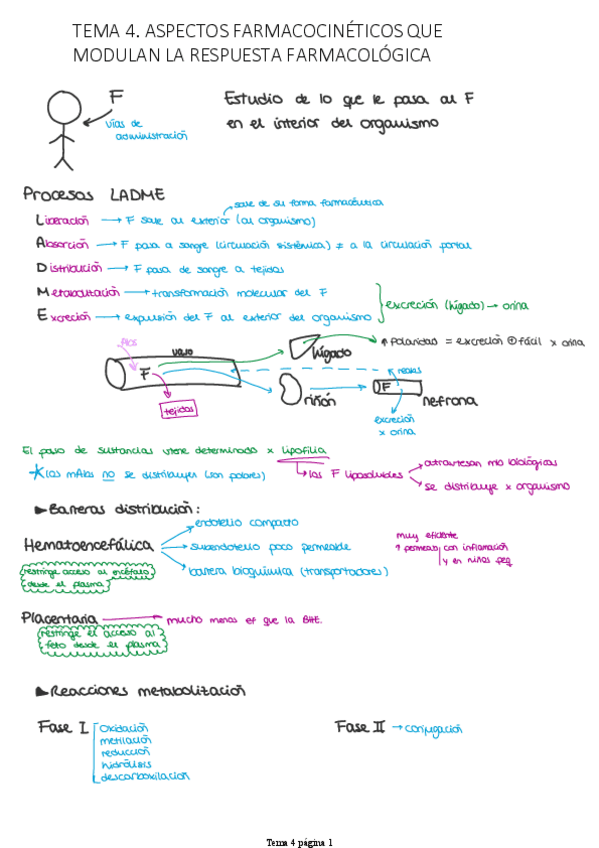 TEMA 4. ASPECTOS FARMACOCINÉTICOS QUE
MODULAN LA RESPUESTA FARMACOLÓGICA
F
vías de
administración
Estudio de lo que le pasa al F
en el interior del organismo
Procesos LADME
sale de su forma farmacéutica
Liberación → F sale al exterior (al organismo)
Absorción → F pasa a sangre (circulación sistémica) ≠ a la circulación portal
Distribución → F pasa de sangre a tejidos
Metabolización → transformación molecular del F
Excreción → expulsión del F al exterior del organismo
excreción (hígado) → orina
vaso
F
tejidos
hígado
↑ polaridad = excreción ⊕ fácil x orina
riñón
F
nefrona
excreción
x orina
El paso de sustancias viene determinado x lipofilia
los mAbs no se distribuyen (son polares)
los F liposolubles
atraviesan mb biológicas
se distribuye x organismo
▶Barreras distribución:
Hematoencefálica
endotelio compacto
subendotelio poco permeable
barrera bioquímica (transportadores)
muy eficiente
↑ permeab, con inflamación
y en niños peq
restringe acceso al encéfalo
desde el plasma
Placentaria → mucho menos ef que la BHE.
restringe el acceso al
feto desde el plasma
▶Reacciones metabolización
Fase I
Oxidación
metilación
reducción
hidrólisis
descarboxilación
Fase II → conjugación
Tema 4 página 1